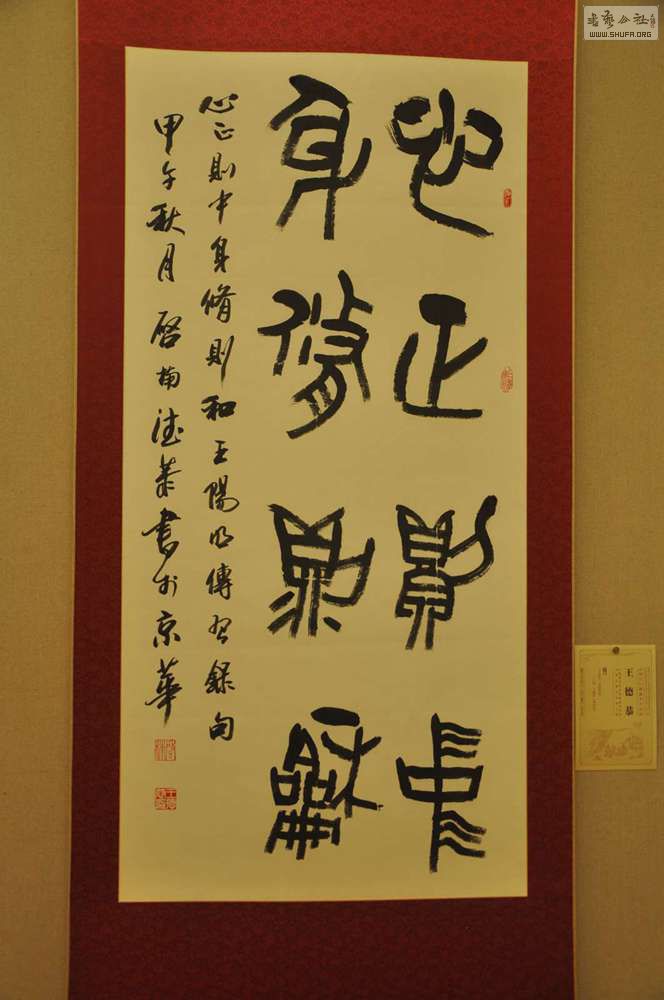 心正則中
身脩則龢
心正則中身脩則和王陽明傳習錄句
甲午秋月啓楠德恭書於京華
王德恭
書藝公社
WWW.SHUFA.ORG